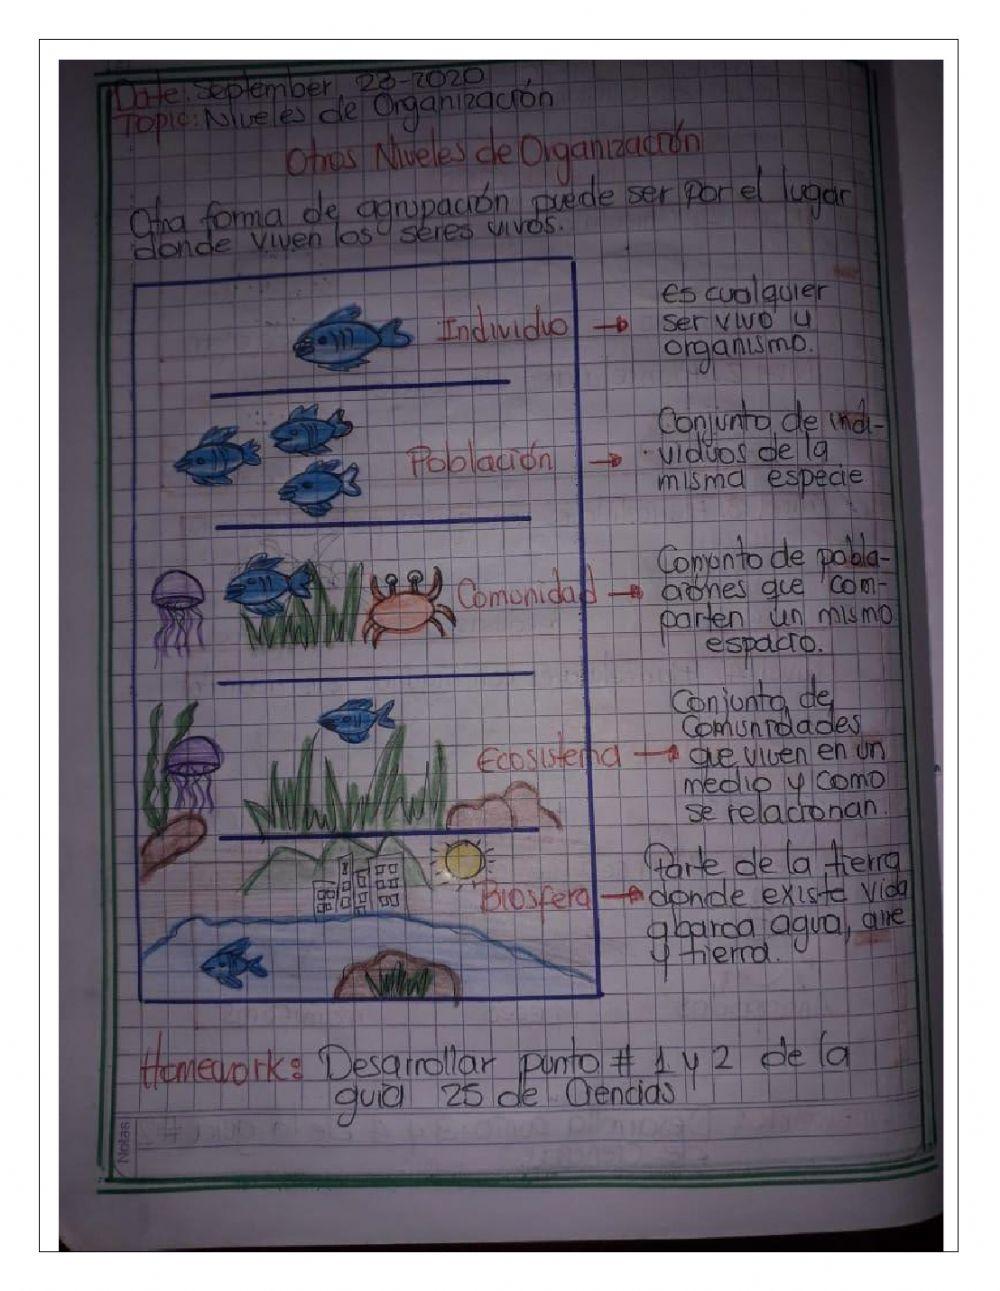 Date: September 23-2020
Topic: Niveles de Organización
Otros Niveles de Organización
Otra forma de agrupación puede ser por el lugar
donde viven los seres vivos.
Individuo
es cualquier
ser vivo u
organismo.
Población
Conjunto de indi-
viduos de la
misma especie
Comunidad
Conjunto de pobla-
ciones que com-
parten un mismo
espacio.
Ecosistema
Conjunto de
Comunidades
que viven en un
medio y como
se relacionan.
Biosfera
Parte de la tierra
donde existe vida
abarca agua, aire
y tierra.
Homework: Desarrollar punto # 1 y 2 de la
guia 25 de Ciencias
Notas